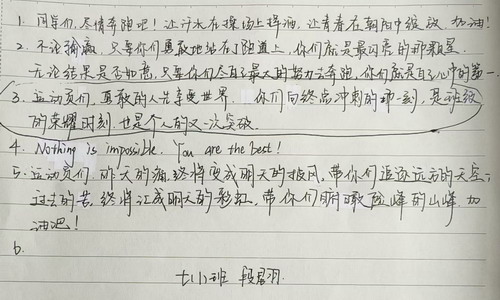 1. 同学们,尽情奔跑吧!让汗水在操场上挥洒,让青春在朝阳中绽放,加油!
2. 不论输赢,只要你们勇敢地站在了跑道上,你们就是最闪亮的那颗星.
无论结果是否如意,只要你们尽自己最大的努力去奔跑,你们就是自己心中的第一.
3. 运动员们,勇敢的人先享受世界. 你们向终点冲刺的那一刻,是班级
的荣耀时刻,也是个人的又一次突破.
4. Nothing is impossible. You are the best!
5. 运动员们,昨天的痛,终将变成明天的报风,带你们追逐远方的天空;
过去的苦,终将汇成明天的彩虹,带你们俯瞰险峰的山峰.加
油吧!
6.
七(1)班 段君羽.